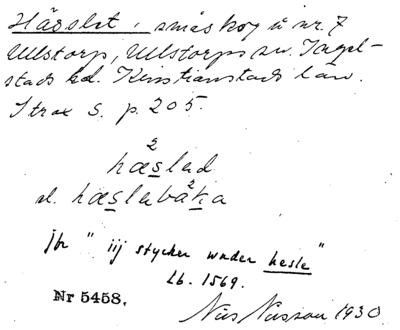 Hässlet, småskog å nr. 7
Ullstorp, Ullstorps sn. Ingel-
stads hd. Kristianstads län.
Strax S. p. 205.
2
hæslad
el. hæslabàka
2
jfr " iij stycker wnder hesle "
Lb. 1569.
Nr 5458.
Nils Nilsson 1930